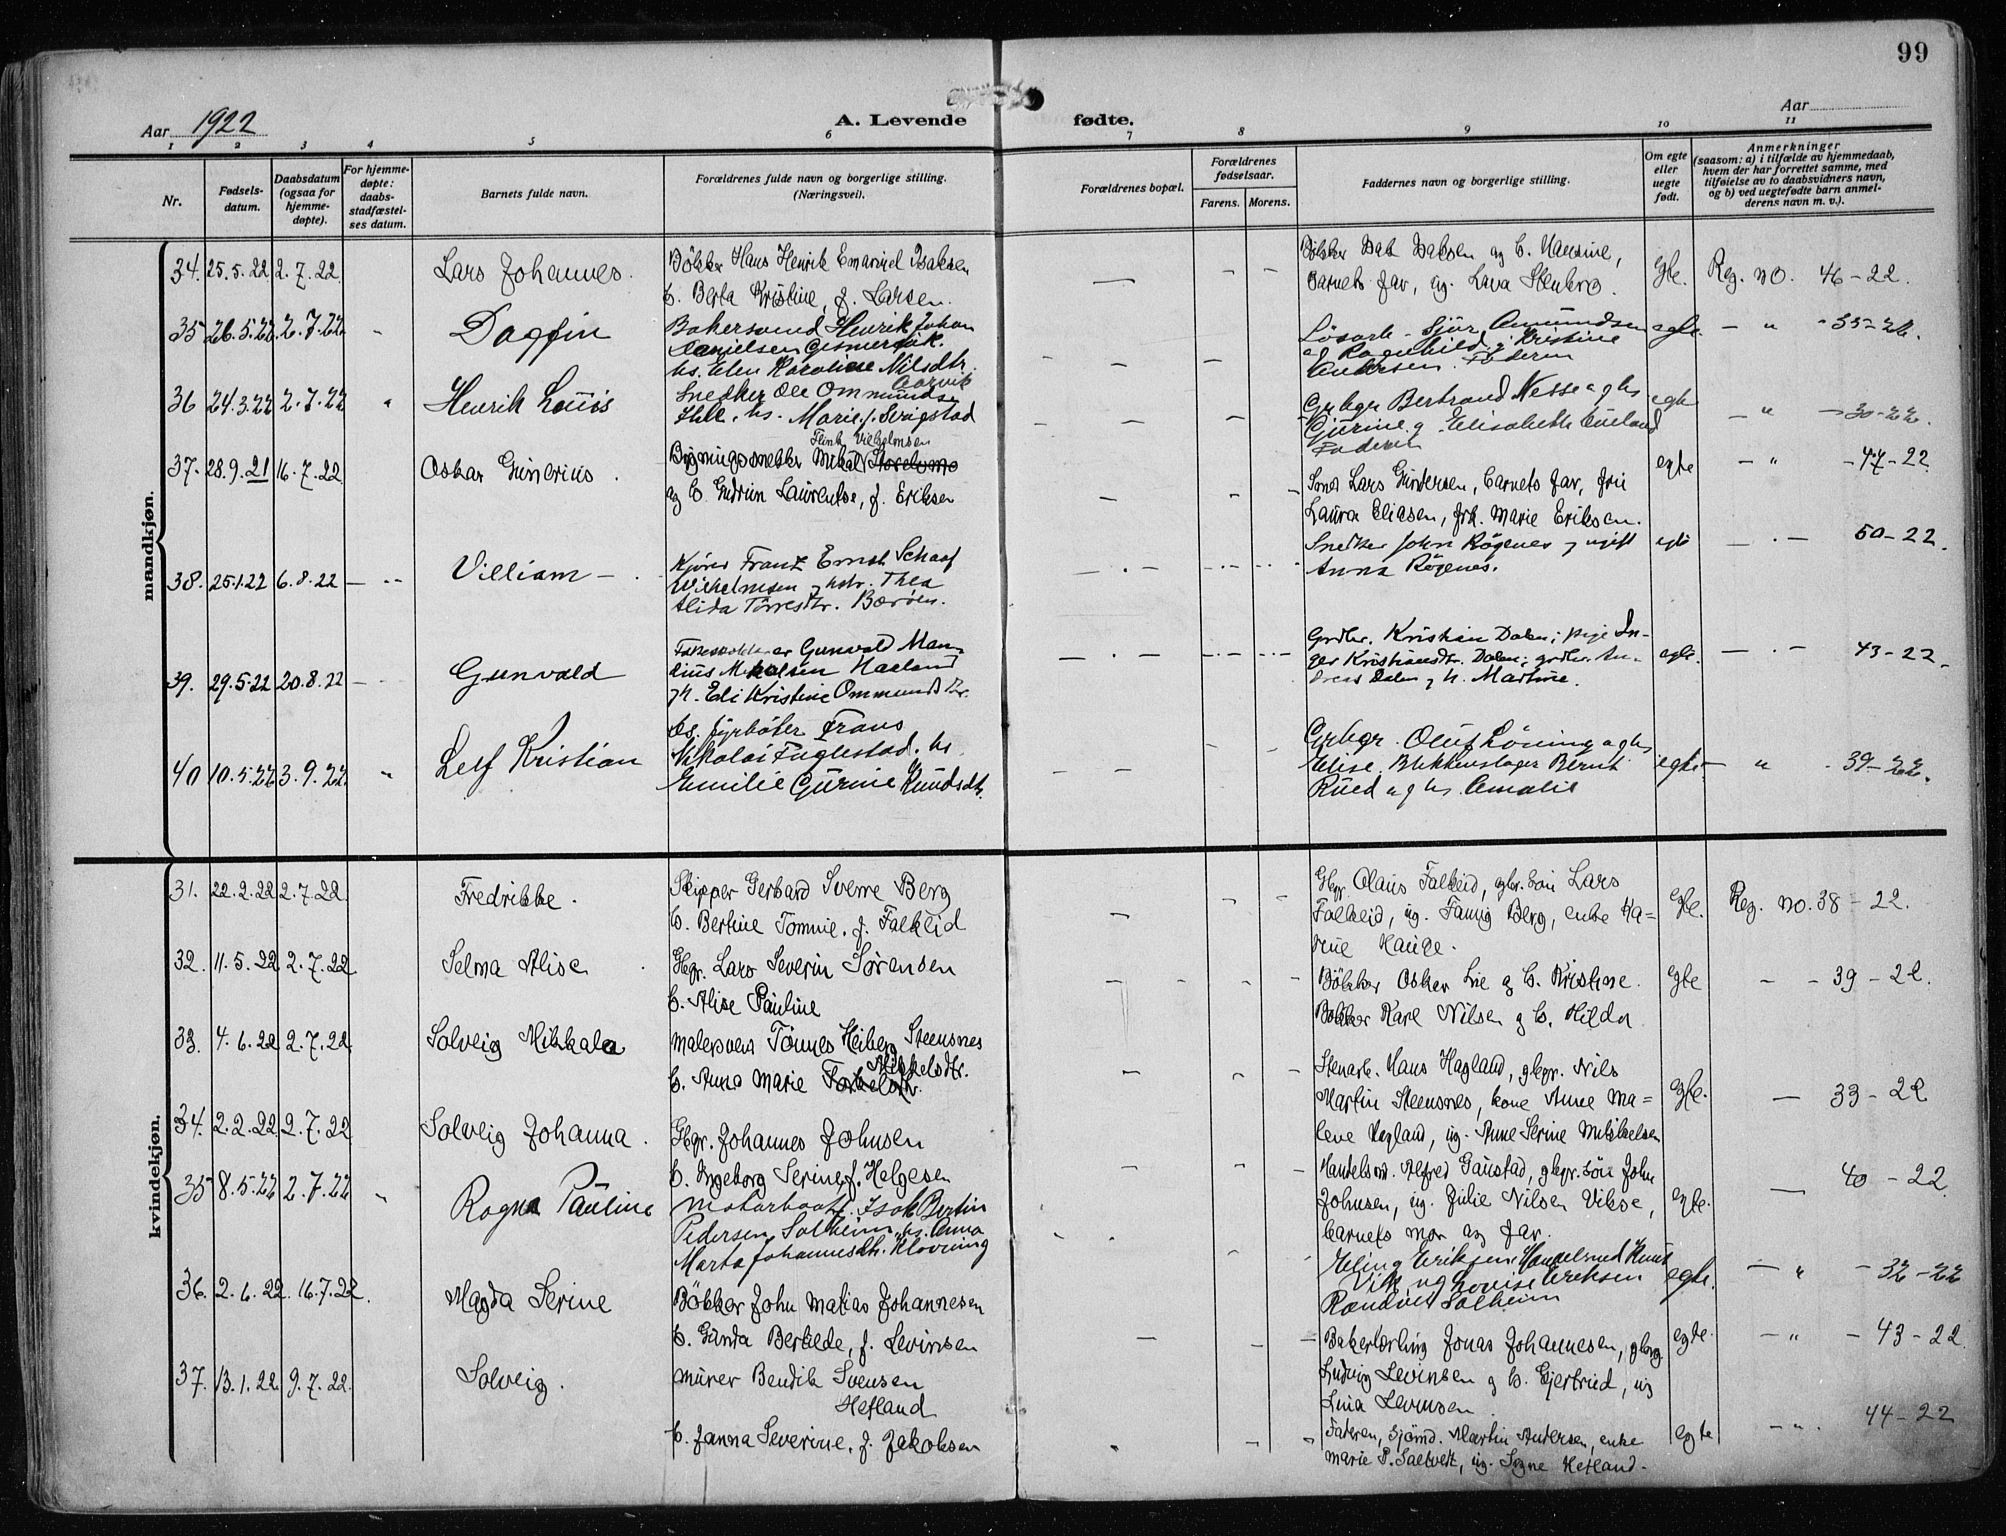 99
Aar 1922
A. Levende fødte.
Aar
1 2 3 4 5 6 7 8 9 10 11
Nr.
Fødsels-datum.
Daabsdatum (ogsaa for hjemme-døpte).
For hjemme-døpte: daabs-stadfæstel-ses datum.
Barnets fulde navn.
Forældrenes fulde navn og borgerlige stilling. (Næringsvei).
Forældrenes bopæl.
Forældrenes fødselsaar.
Farens. Morens.
Faddernes navn og borgerlige stilling.
Om egte eller uegte født.
Anmerkninger (saasom: a) i tilfælde av hjemmedaab, hvem der har forrettet samme, med tilføielse av to daabsvidners navn, og b) ved uegtefødte barn anmel-derens navn m. v.).
mandkjøn.
34. 25.5.22 2.7.22 Lars Johannes.
Bökker Hans Henrik Emanuel Isaksen
h. Berta Kristine, f. Larsen.
Barnets far, ug. Egte. Reg. no. 46-22.
35 26.5.22 2.7.22 Dagfin
Bakersvend Henrik Johan
Danielsen Gismervik.
hs. Elen Karoline Nilsdtr.
Løsarb. Sjur Amundsen
og Ragnhild, Kristine
Andersen. Faderen
egte. - " - 35-22.
36 24.3.22 2.7.22 Henrik Louis
Snedker Ole Ommundsen
hs. Marie f. Serigstad
Grbgr Bertrand Nesse og hs
Gurine og Elisabeth
Faderen
egte - " - 30-22.
37. 28.9.21 16.7.22 Oskar Gunerius.
Flink Vilhelmsen
Bygningssnekker Mikal
og h. Gudrun Laurentse, f. Eriksen
Lars Gundersen, barnets far, frü
Laura Eliasen, frk. Marie Eriksen.
egte - " - 47-22
38. 25.1.22 6.8.22 Villiam
Kjører Frantz Ernst Schaaf
Wilhelmsen og hstr. Thea
Alida Törresdtr. Bærøen.
Snedker John Røgenes og ugift
Anna Røgenes.
egte 50-22.
39. 29.5.22 20.8.22 Gunvald
Gunvald Man-
dius Mikalsen Haaland
og h. Edi Kristine Ommundsdtr.
Grdbr. Kristian Dalen; pige In-
ger Kristiansdtr. Dalen; grdbr. An-
dreas Dalen og h. Martine.
egte. 43-22.
40 10.5.22 3.9.22 Leif Kristian
hs. fyrbøter Frans
Nikolai Fuglestad. hs.
Emilie Gurine Knudsdtr.
Grbgr. Oluf Löning og hs
Elise. Blikkenslager Bernt
Rued og hs. Amalie
egte - " - 39-22.
kvindekjøn.
31. 22.2.22 2.7.22 Fredrikke.
Skipper Gerhard Sverre Berg
h. Bertine Tomine, f. Falkeid
Gbgr. Olaus Falkeid, gbr. søn Lars
Falkeid, ug. Fanny Berg, enke Ka=
rine Hauge.
Egte. Reg. no. 38-22.
32. 11.5.22 2.7.22 Selma Alise
Gbgr. Lars Severin Sørensen
h. Alise Pauline
Bökker Oskar Lie og h. Kristine.
Bökker Karl Nilsen og h. Hilda
egte - - 39-22.
33. 4.6.22 2.7.22 Solveig Mikkala
Malersvein Tönnes Heiberg Steensnes
Mikkelsdtr.
h. Anna Marie Torkelsdtr.
Stenarb. Hans Hagland, gbgr. Nils
Martin Steensnes, kone Anne Ma=
lene Hagland, ug. Anne Serine Mikkelsen
egte. - 33-22
34. 2.2.22 2.7.22 Solveig Johanna.
Gbgr. Johannes Johnsen
h. Ingeborg Serine, f. Helgesen
Handelsm. Alfred Gaustad, gbgr. søn John
Johnsen, ug. Julie Nilsen Vikse,
barnets mor og far.
egte. 40-22.
35 8.5.22 2.7.22 Ragna Pauline
Isak Bertin
Pedersen Solheim, hs. Anna
Marta Johannesdtr. Klovning
Eling Eriksen. Handelsmd Knut
Vik og Lovise Eriksen
Solheim
egte. - " - 32-22
36. 2.6.22. 16.7.22. Magda Serine
Bökker John Matias Johannesen
h. Gunda Bertilde, f. Levinsen
Bakerlærling Jonas Johannesen, gbgr
Ludvig Levinsen og h. Gjertrud, ug
Lina Levinsen.
egte. - " - 43-22
37. 13.1.22 9.7.22. Solveig.
Murer Bendik Svensen
Hetland
h. Janna Severine, f. Jakobsen
Faderen, Sjømd. Martin Andersen, enke
Marie P. Saltvik, ug. Signe Hetland.
egte - " - 44-22